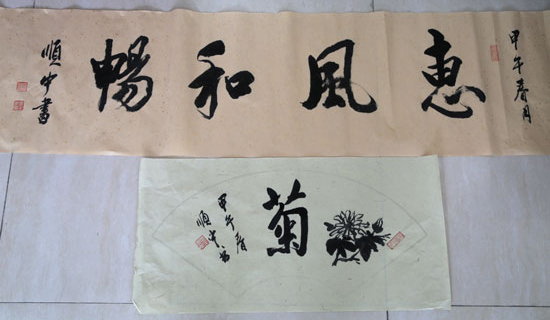 甲午春月
惠風和暢
順中書
菊
甲午春
順中書